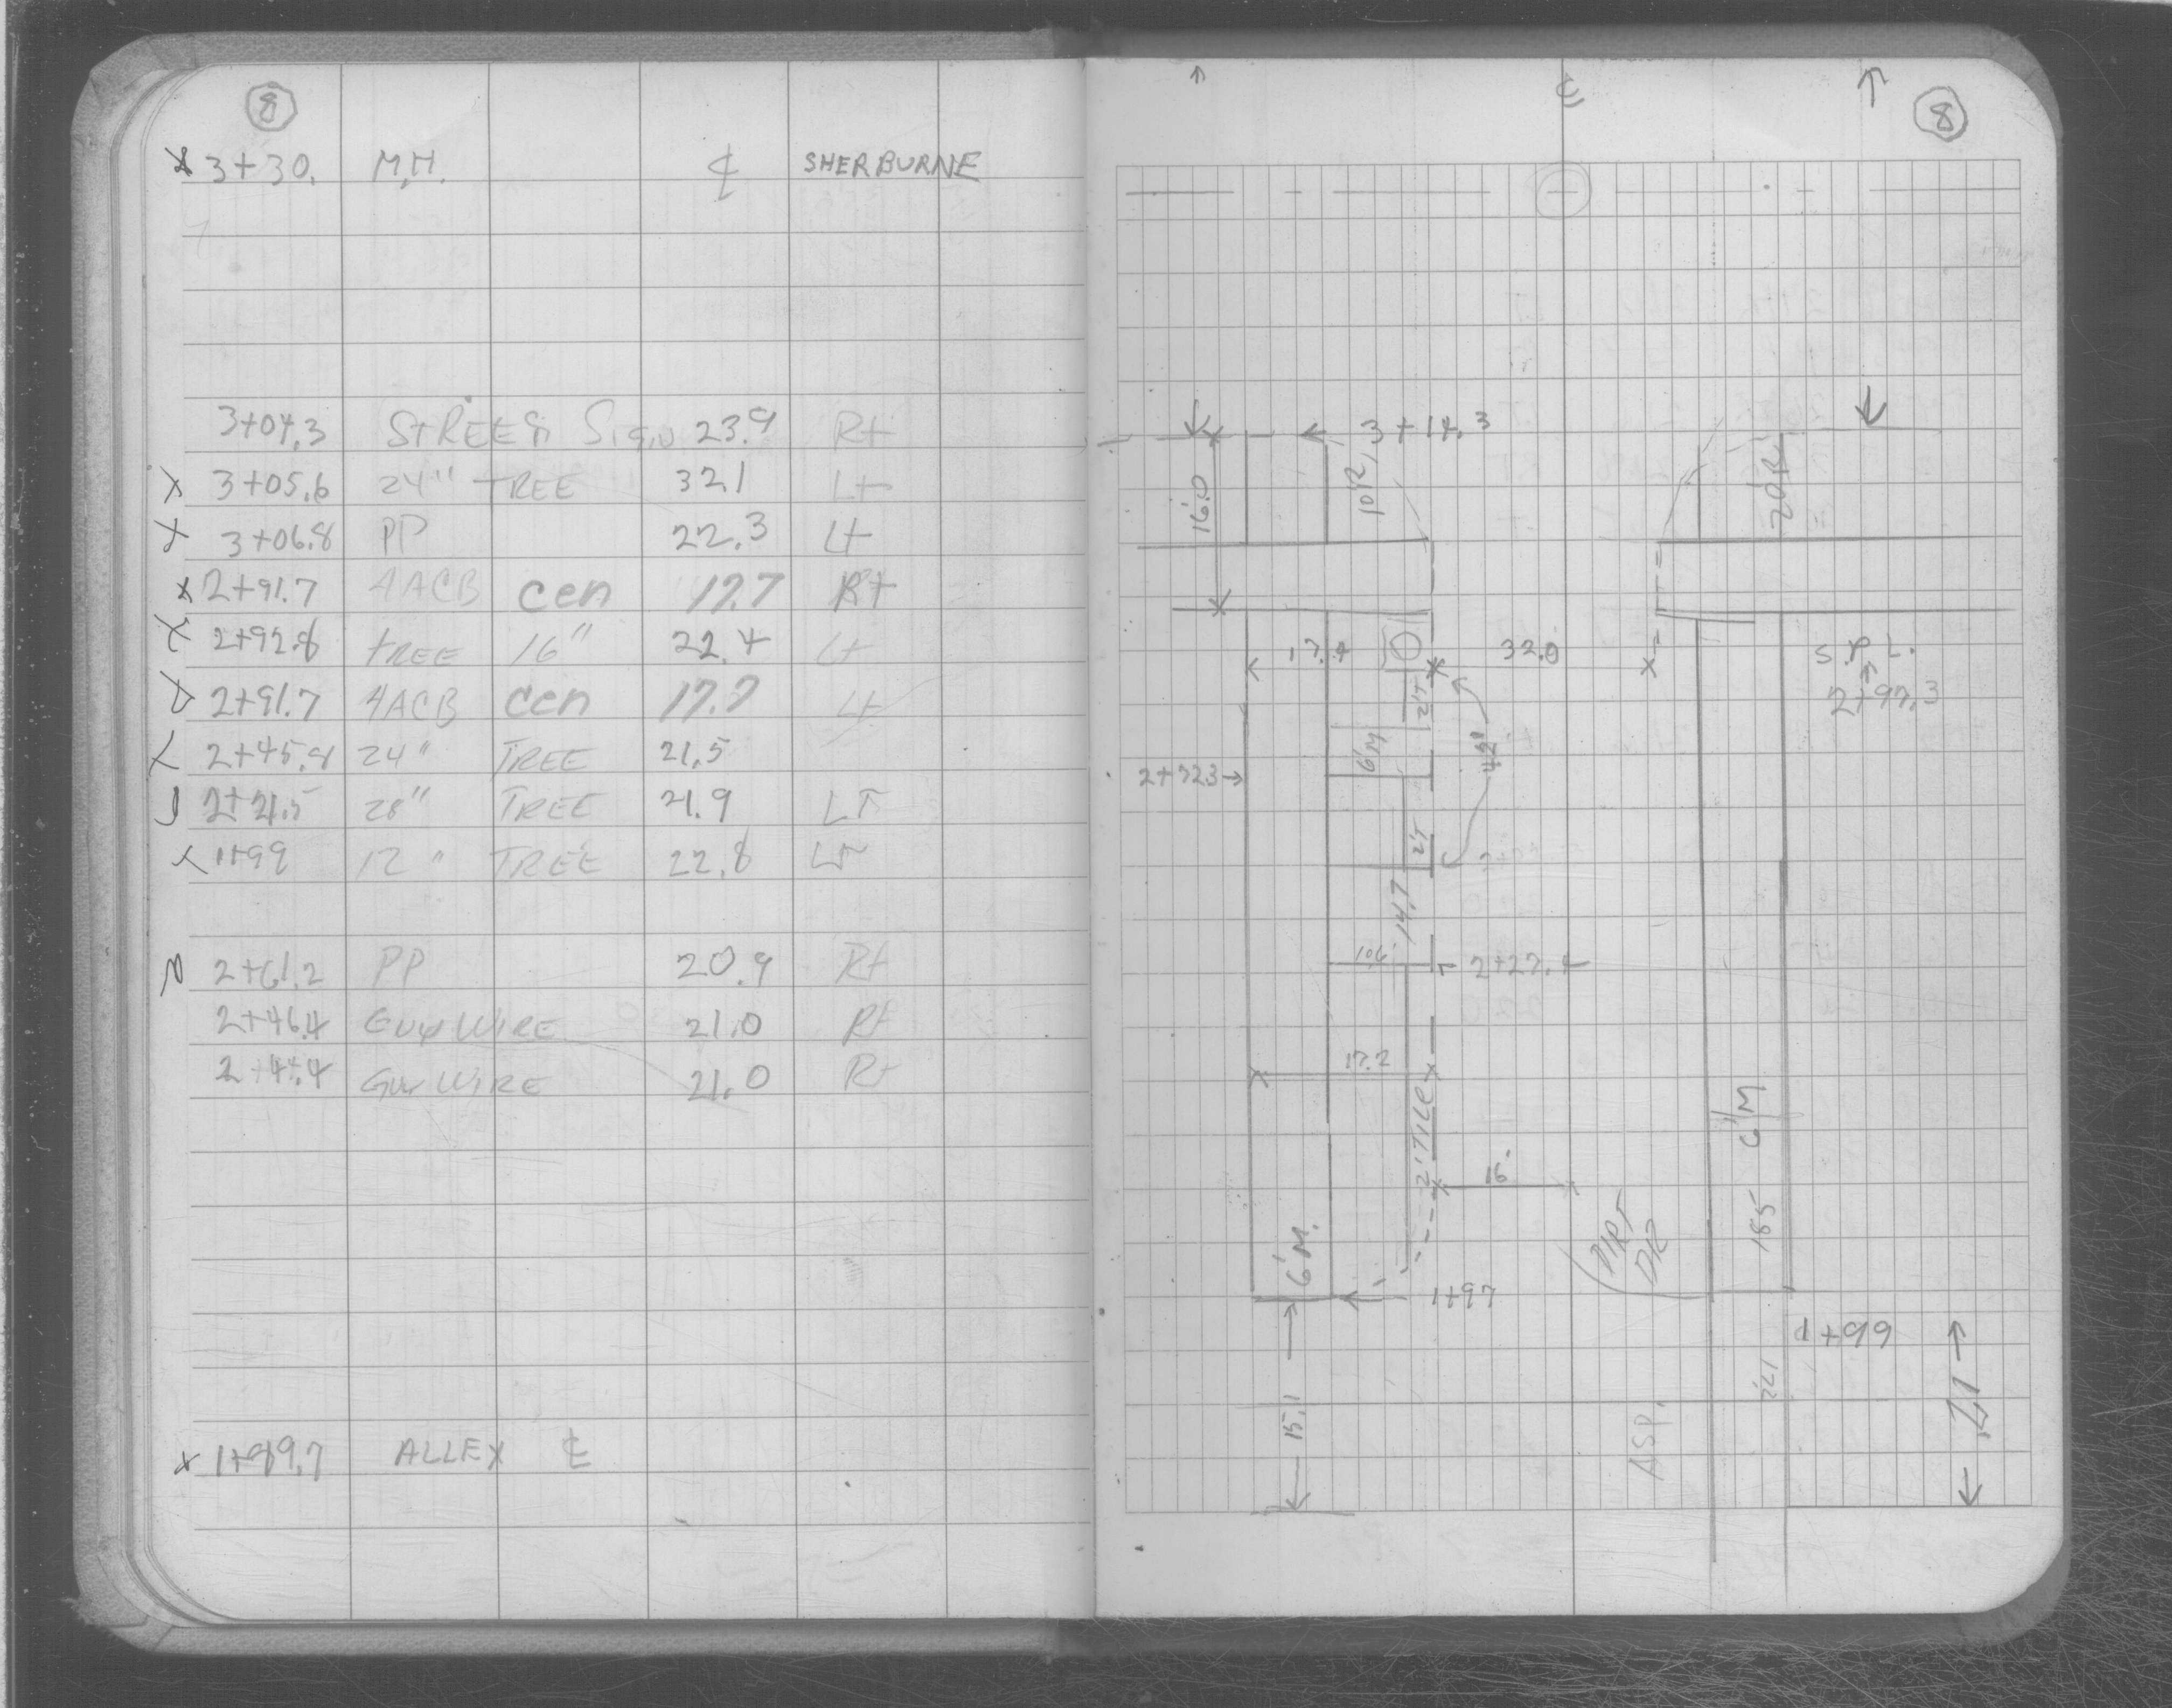 8
3+30. M.H. ℄ SHERBURNE
3+04.3 STREET Sign 23.9 Rt
3+05.6 24" TREE 32.1 Lt
3+06.8 PP 22.3 Lt
2+91.7 4ACB cen 17.7 Rt
2+92.8 TREE 16" 22.4 Lt
2+91.7 4ACB cen 17.7 Lt
2+45.8 24" TREE 21.5
2+21.5 28" TREE 21.9 LT
1+99 12" TREE 22.8 LT
2+61.2 PP 20.9 Rt
2+46.4 GUY WIRE 21.0 Rt
2+44.4 Guy WIRE 21.0 Rt
1+89.7 ALLEY ℄
℄
8
3+14.3
16.0
10'R
20'R
17.4
32.0
S.P.L.
2+97.3
2'T
6'M
42'
2'T
14.7
10.6
2+27.4
17.2
2' TILE
16
6'M
185
DIRT
DR
6'M.
1+97
1+99
15.1
221
21
ASP.